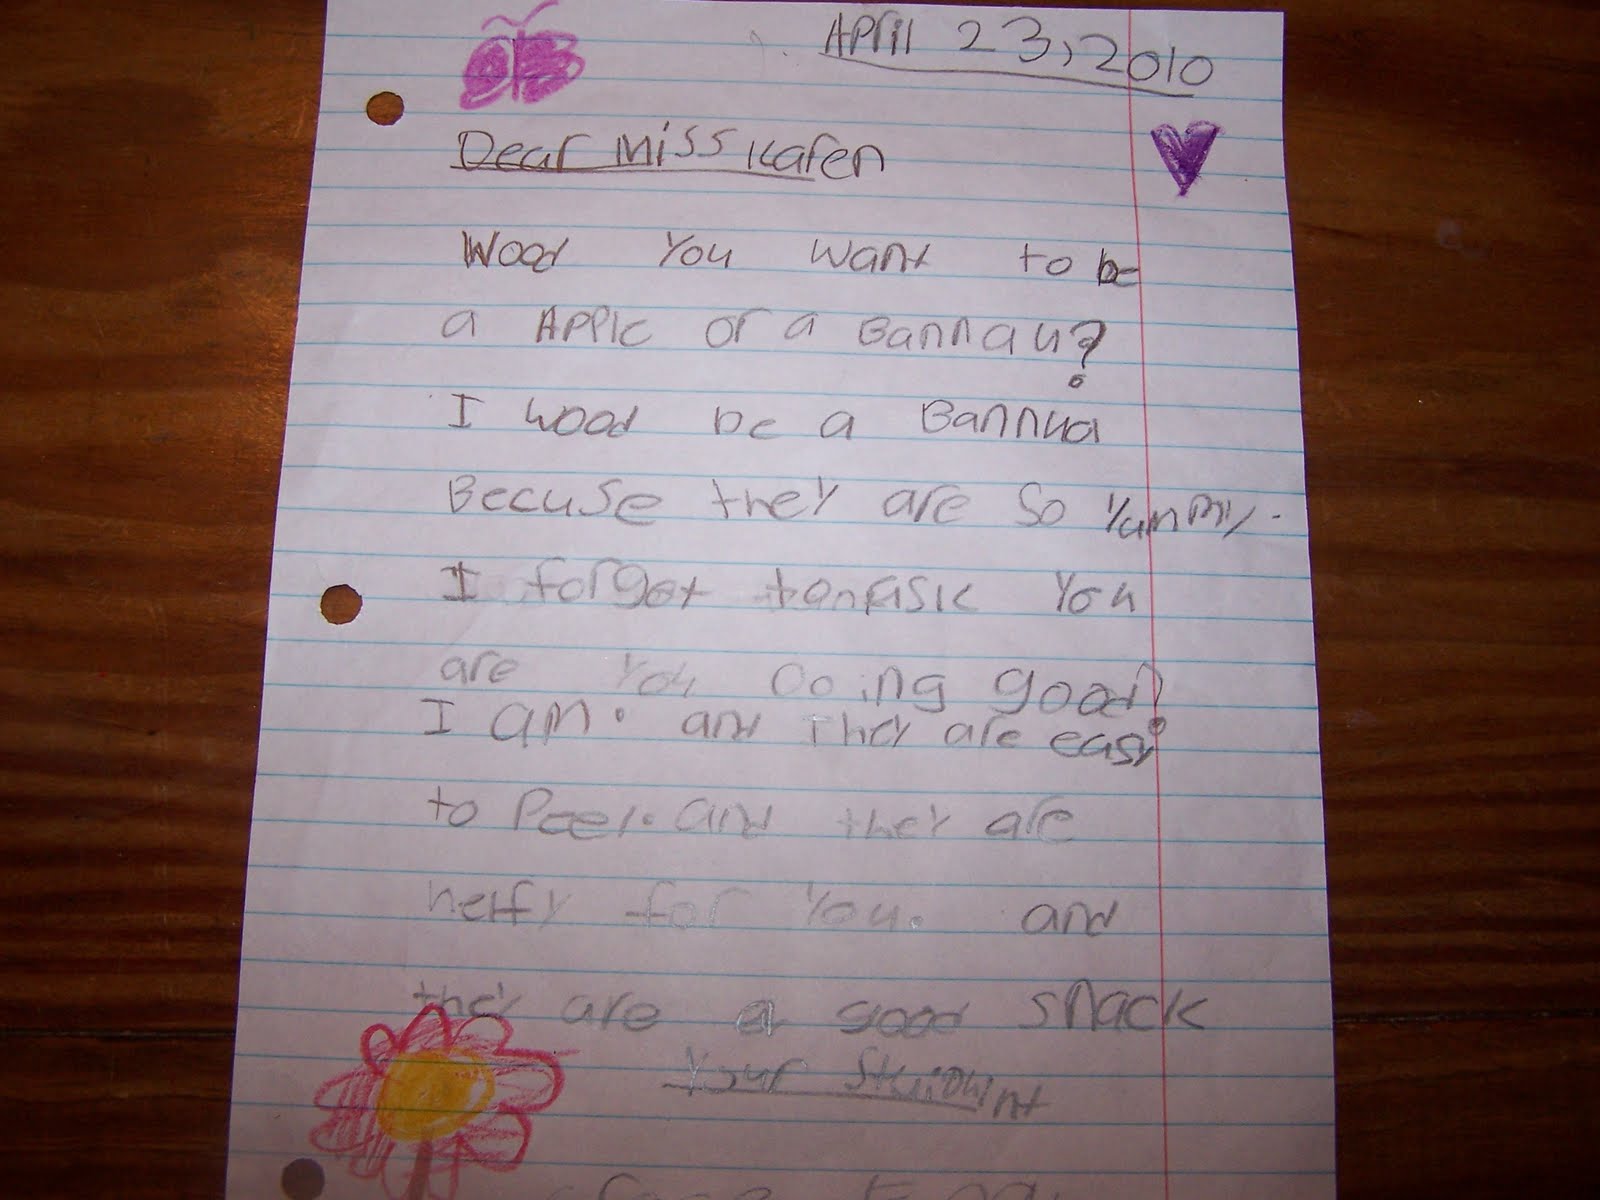 April 23, 2010
Dear miss Karen
Wood You want to be
a Apple or a Bannau?
I wood be a Bannua
Becuse they are so yummy.
I forget to ask You
are You Doing good?
I am. and They are easy
to Peel. and they are
helfy for You. and
they are a good snack
Your